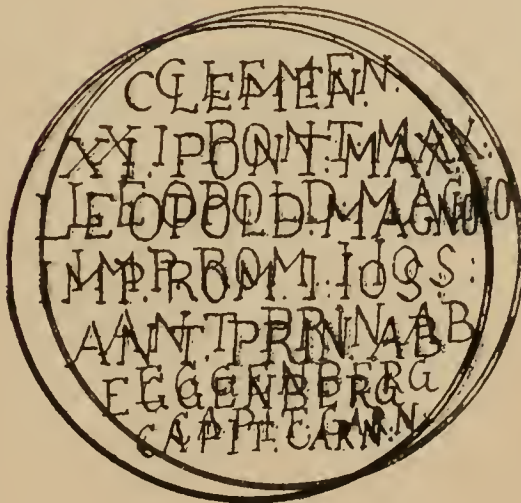 CLEMEN.
XI. PONT. MAX.
LEOPOLD. MAGNO
IMP. ROM. I. IOS.
ANT. PRIN. AB
EGGENBERG
CAPIT. CARN.